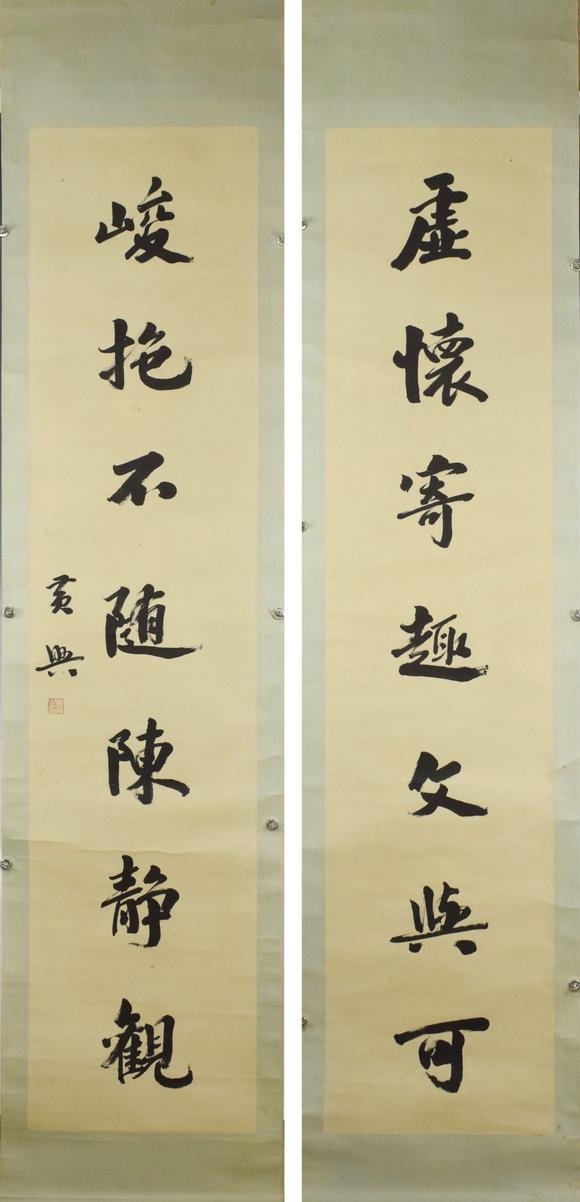 虛懷寄趣文與可
峻抱不隨陳靜觀
黃興